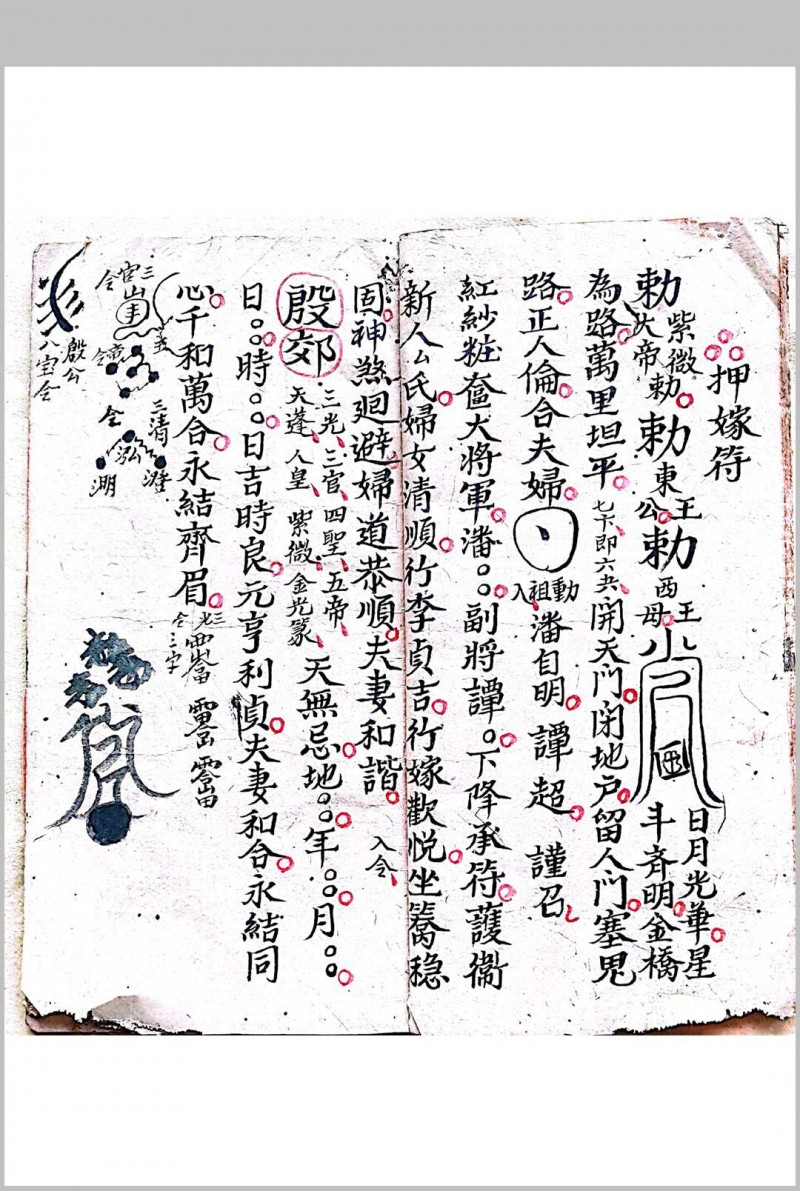 押嫁符
勅紫微大帝勅勅東王公勅西王母日月光華星斗齊明金橋
為路萬里坦平開天門閉地户留人門塞鬼
路正人倫合夫婦動祖入潘自明譚超謹召
紅紗粧奩大將軍潘副將譚下降承符護衛
新人厶氏婦女清順行李貞吉行嫁歡悅坐篙稳
固神煞迴避婦道恭順夫妻和諧入令
殷郊三光三官四聖五帝天蓬人皇紫微金光篆天無忌地年月
日時日吉時良元亨利貞夫妻和合永結同
心千和萬合永結齊眉
三清
三官
殷公
八宝令